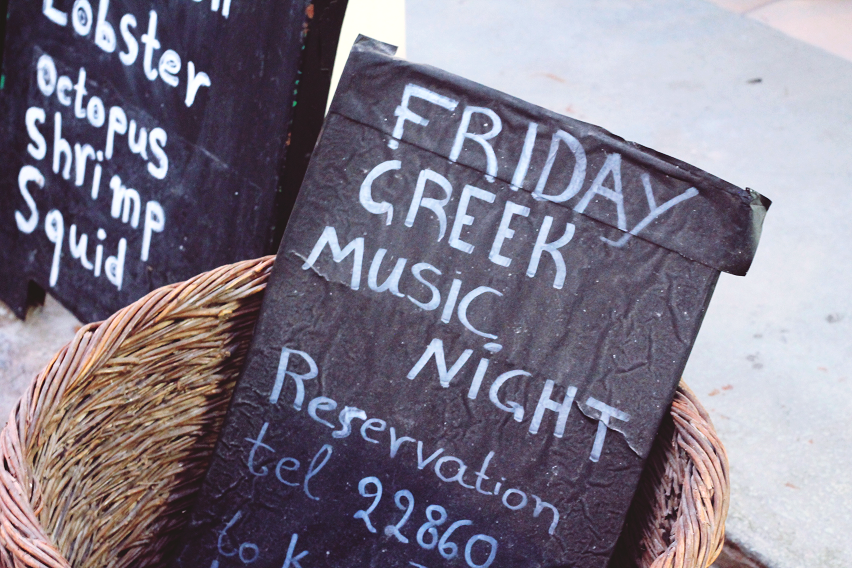 Lobster
Octopus
Shrimp
Squid
FRIDAY
GREEK
MUSIC
NIGHT
Reservation
tel 22860